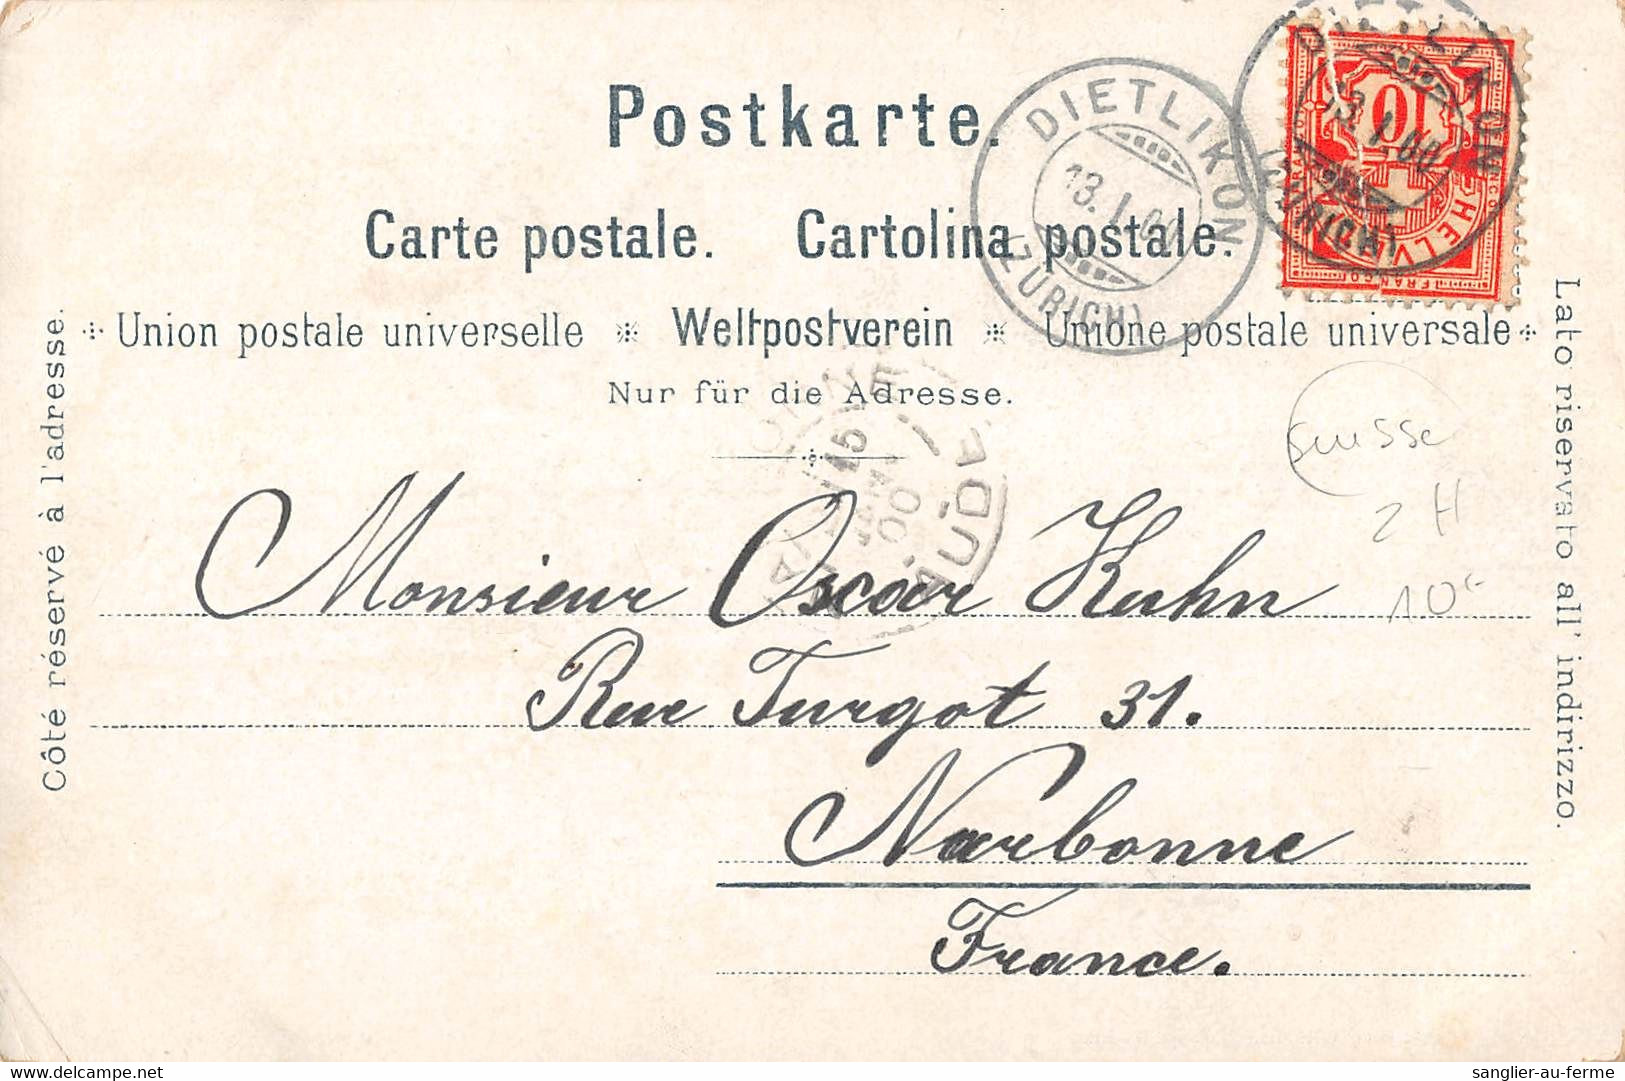 Postkarte.
Carte postale. Cartolina postale.
Union postale universelle Weltpostverein Unione postale universale
Nur für die Adresse.
Côté réservé à l'adresse.
Lato riservato all' indirizzo.
DIETLIKON
13.I.00
(ZÜRICH)
DIETLIKON
13.I.00
(ZÜRICH)
10
HELV
FRANCO
15
00
AUDE
Suisse
2 H
10€
Monsieur Oscar Kuhn
Rue Turgot 31.
Narbonne
France.
sanglier-au-ferme